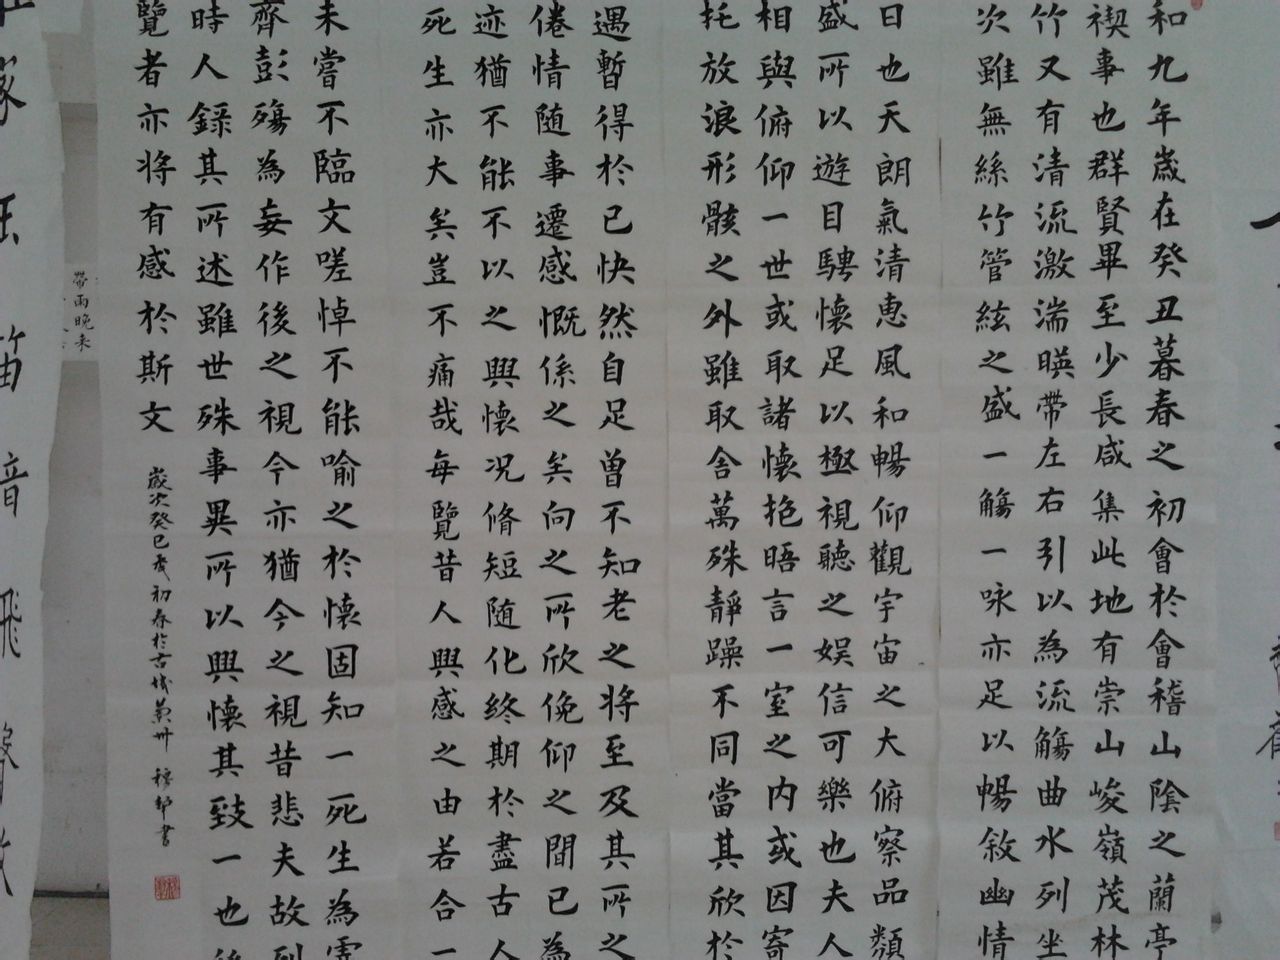 和九年歲在癸丑暮春之初會於會稽山陰之蘭亭
禊事也群賢畢至少長咸集此地有崇山峻嶺茂林
竹又有清流激湍暎帶左右引以為流觴曲水列坐
次雖無絲竹管絃之盛一觴一咏亦足以暢敘幽情
日也天朗氣清惠風和暢仰觀宇宙之大俯察品類
盛所以遊目騁懷足以極視聽之娛信可樂也夫人
相與俯仰一世或取諸懷抱晤言一室之內或因寄
托放浪形骸之外雖取舍萬殊靜躁不同當其欣於
遇暫得於己快然自足曾不知老之將至及其所之
倦情随事遷感慨係之矣向之所欣俛仰之間已為
迹猶不能不以之興懷况脩短随化終期於盡古人
死生亦大矣豈不痛哉每覽昔人興感之由若合一
未嘗不臨文嗟悼不能喻之於懷固知一死生為虛
齊彭殤為妄作後之視今亦猶今之視昔悲夫故列
時人錄其所述雖世殊事異所以興懷其致一也後
覽者亦將有感於斯文
歲次癸巳年初春於古城冀州
書
帶雨晚來
笛音飛聲